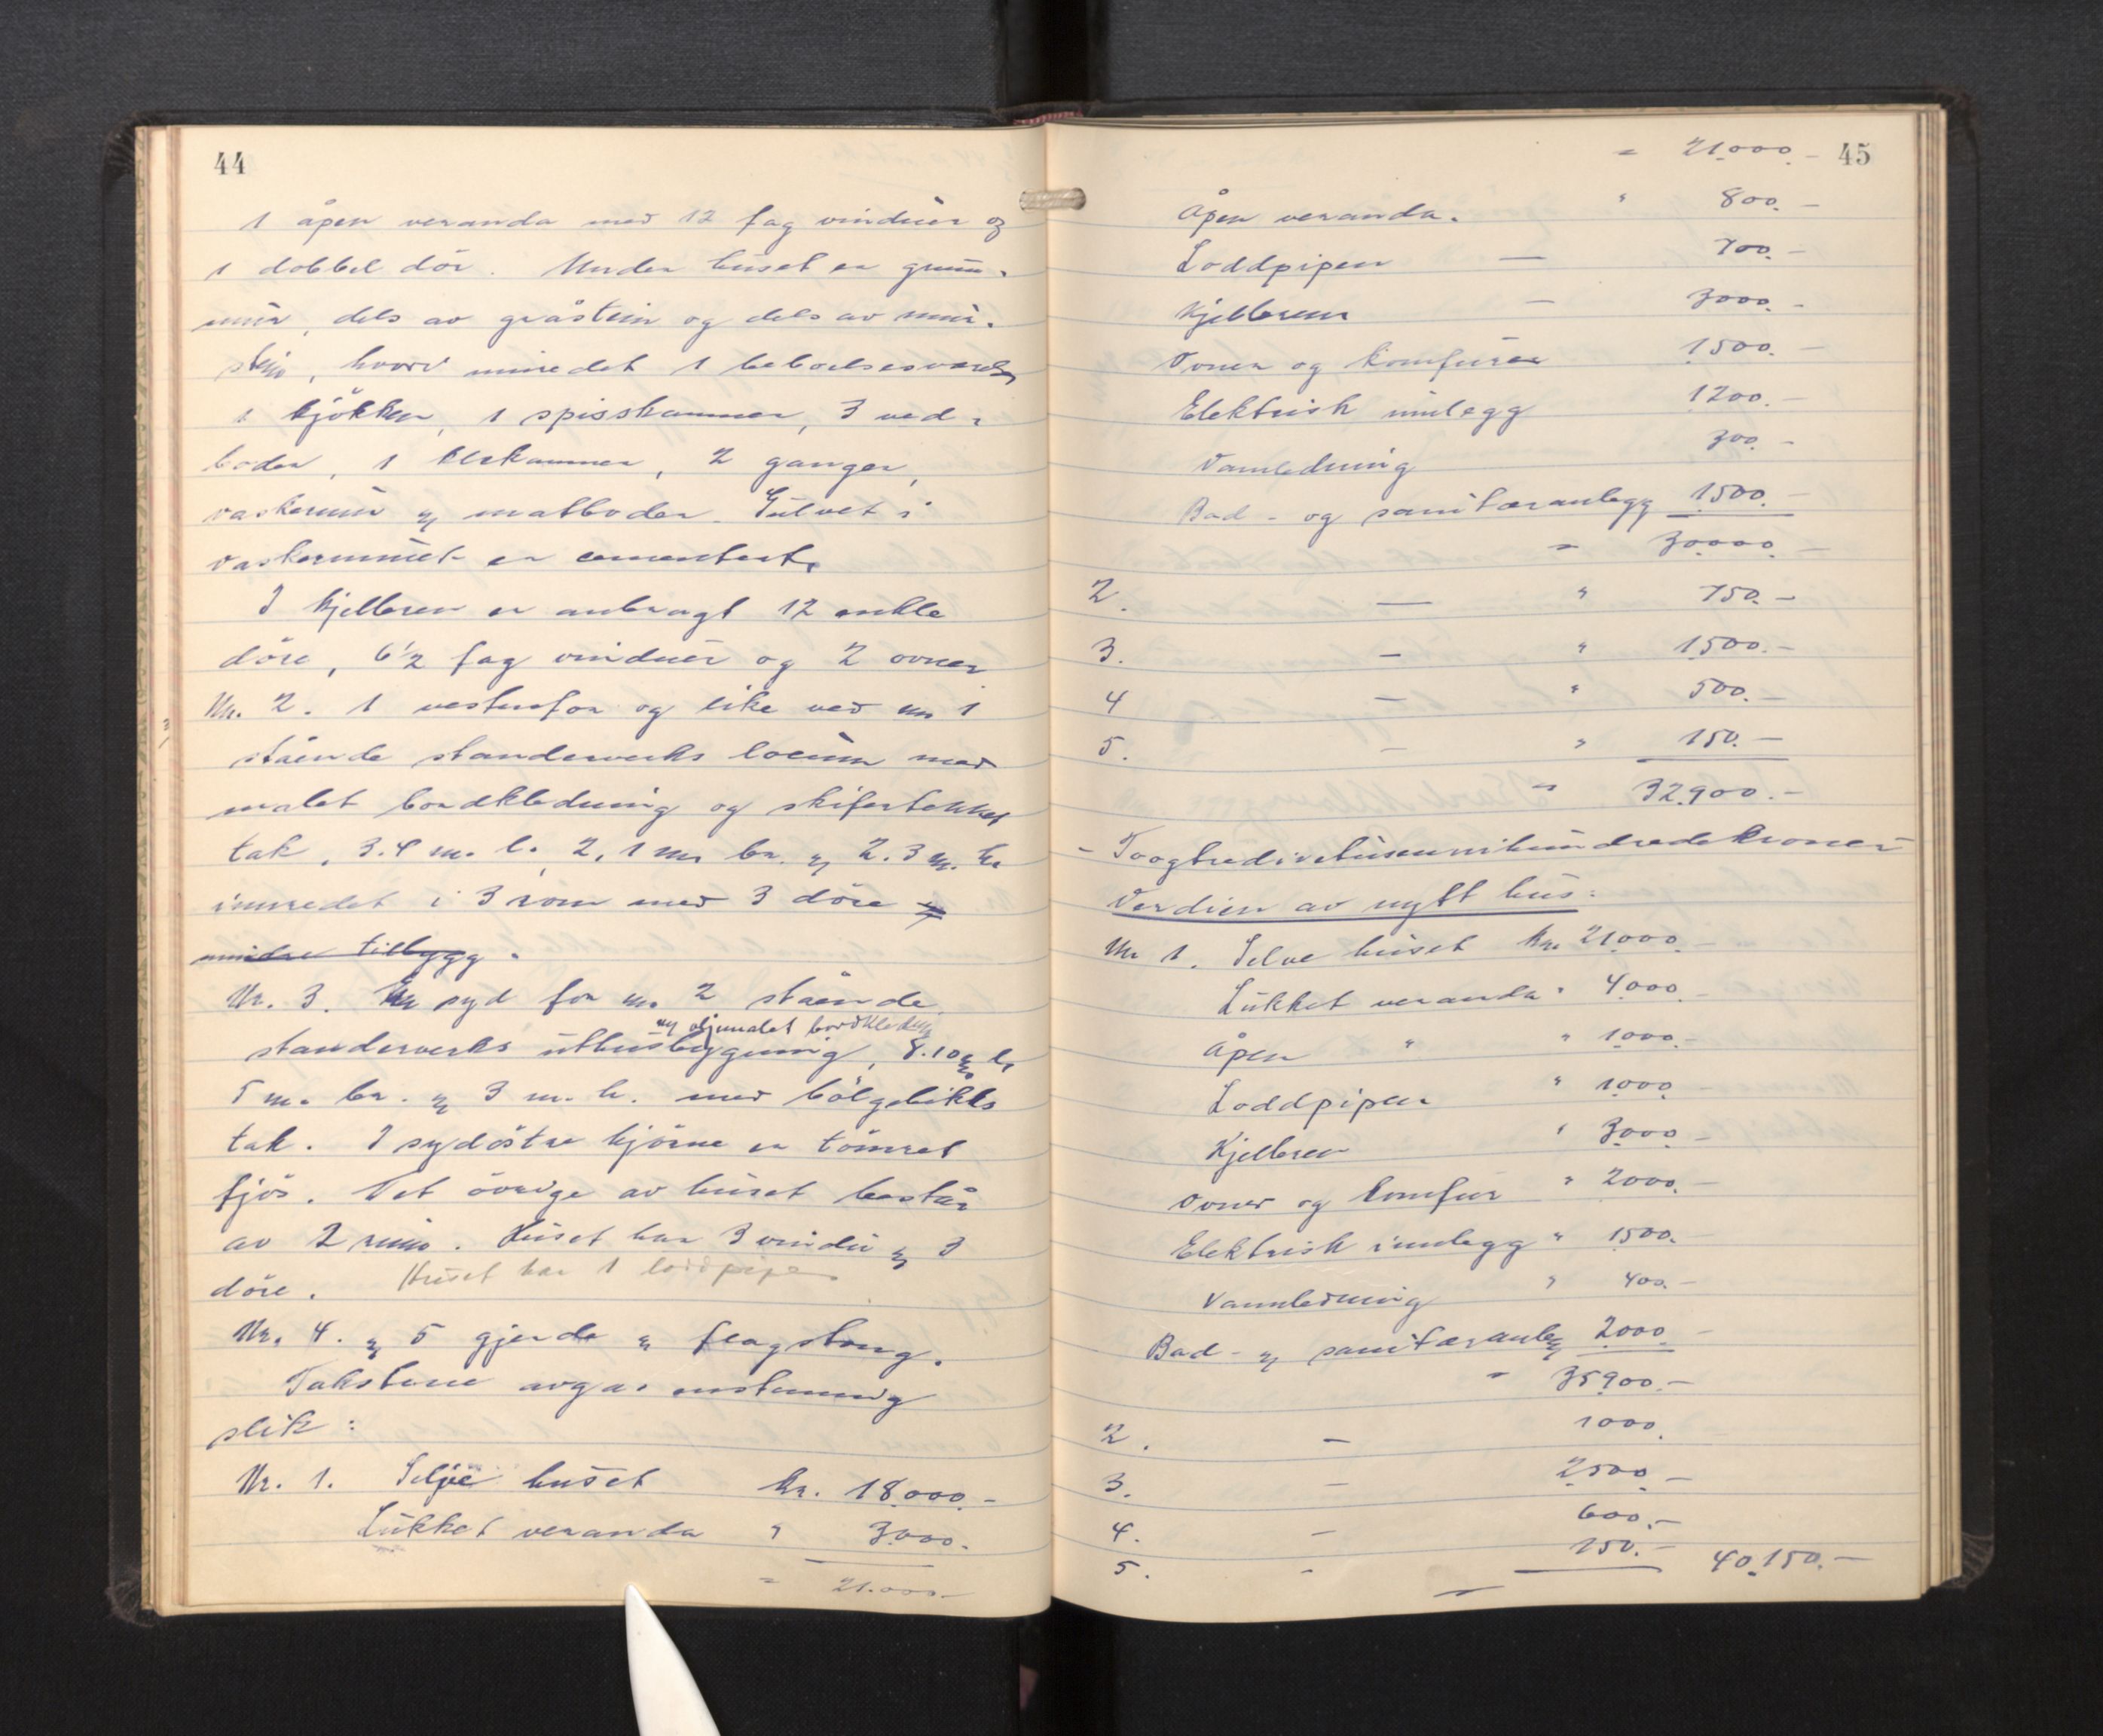 44
1 åpen veranda med 12 fag vinduer og
1 dobbel dör. Under huset er grunn-
mur, dels av gråstein og dels av mur-
stein, hvori innredet 1 beboelsesværelse,
1 kjökken, 1 spisskammer, 3 ved-
boder, 1 klekammer, 2 ganger,
vaskerum og matboder. Gulvet i
vaskerummet er cementert.
I kjelleren er anbragt 12 enkle
döre, 6½ fag vinduer og 2 ovner
Nr. 2. 1 vestenfor og like ved nr 1
stående standerverks locum med
malet bordkledning og skifertekket
tak, 3.4 m. l., 2,1 m. br. og 2.3 m. h.
innredet i 3 rom med 3 döre og
mindre tilbygg.
Nr. 3. En syd for nr. 2 stående
og oljemalet bordkledning
standerverks uthusbygning, 8.10 m. l.
5 m. br. og 3 m. h. med bölgeblikks
tak. I sydöstre hjörne er tömret
fjös. Det övrige av huset består
av 2 rum. Huset har 3 vindu og 3
döre. Huset har 1 loddpipe
Nr. 4. og 5 gjerde og flagstang.
Takstene avgas enstemmig
slik:
Nr. 1. Selve huset kr. 18.000.-
Lukket veranda " 3.000.-
" 21.000.-
45
" 21.000.-
Åpen veranda. " 800.-
Loddpipen — 700.-
Kjelleren — 3000.-
Ovner og komfurer 1500.-
Elektrisk innlegg 1200.-
Vannledning 300.-
Bad- og sanitæranlegg 1500.-
" 30.000.-
2. — " 750.-
3. — " 1500.-
4 — " 500.-
5. — " 150.-
" 32.900.-
- Toogtredivetusennihundredekroner -
Verdien av nytt hus:
Nr 1. Selve huset kr. 21.000.-
Lukket veranda " 4.000.-
Åpen " " 1.000.-
Loddpipen " 1.000.-
Kjelleren " 3.000.-
Ovner og komfur " 2000.-
Elektrisk innlegg " 1500.-
Vannledning " 400.-
Bad- og sanitæranlegg 2.000.-
" 35.900.-
2. — 1000.
3. — 2500.-
4. — 600.-
5. - 150.- 40.150.-